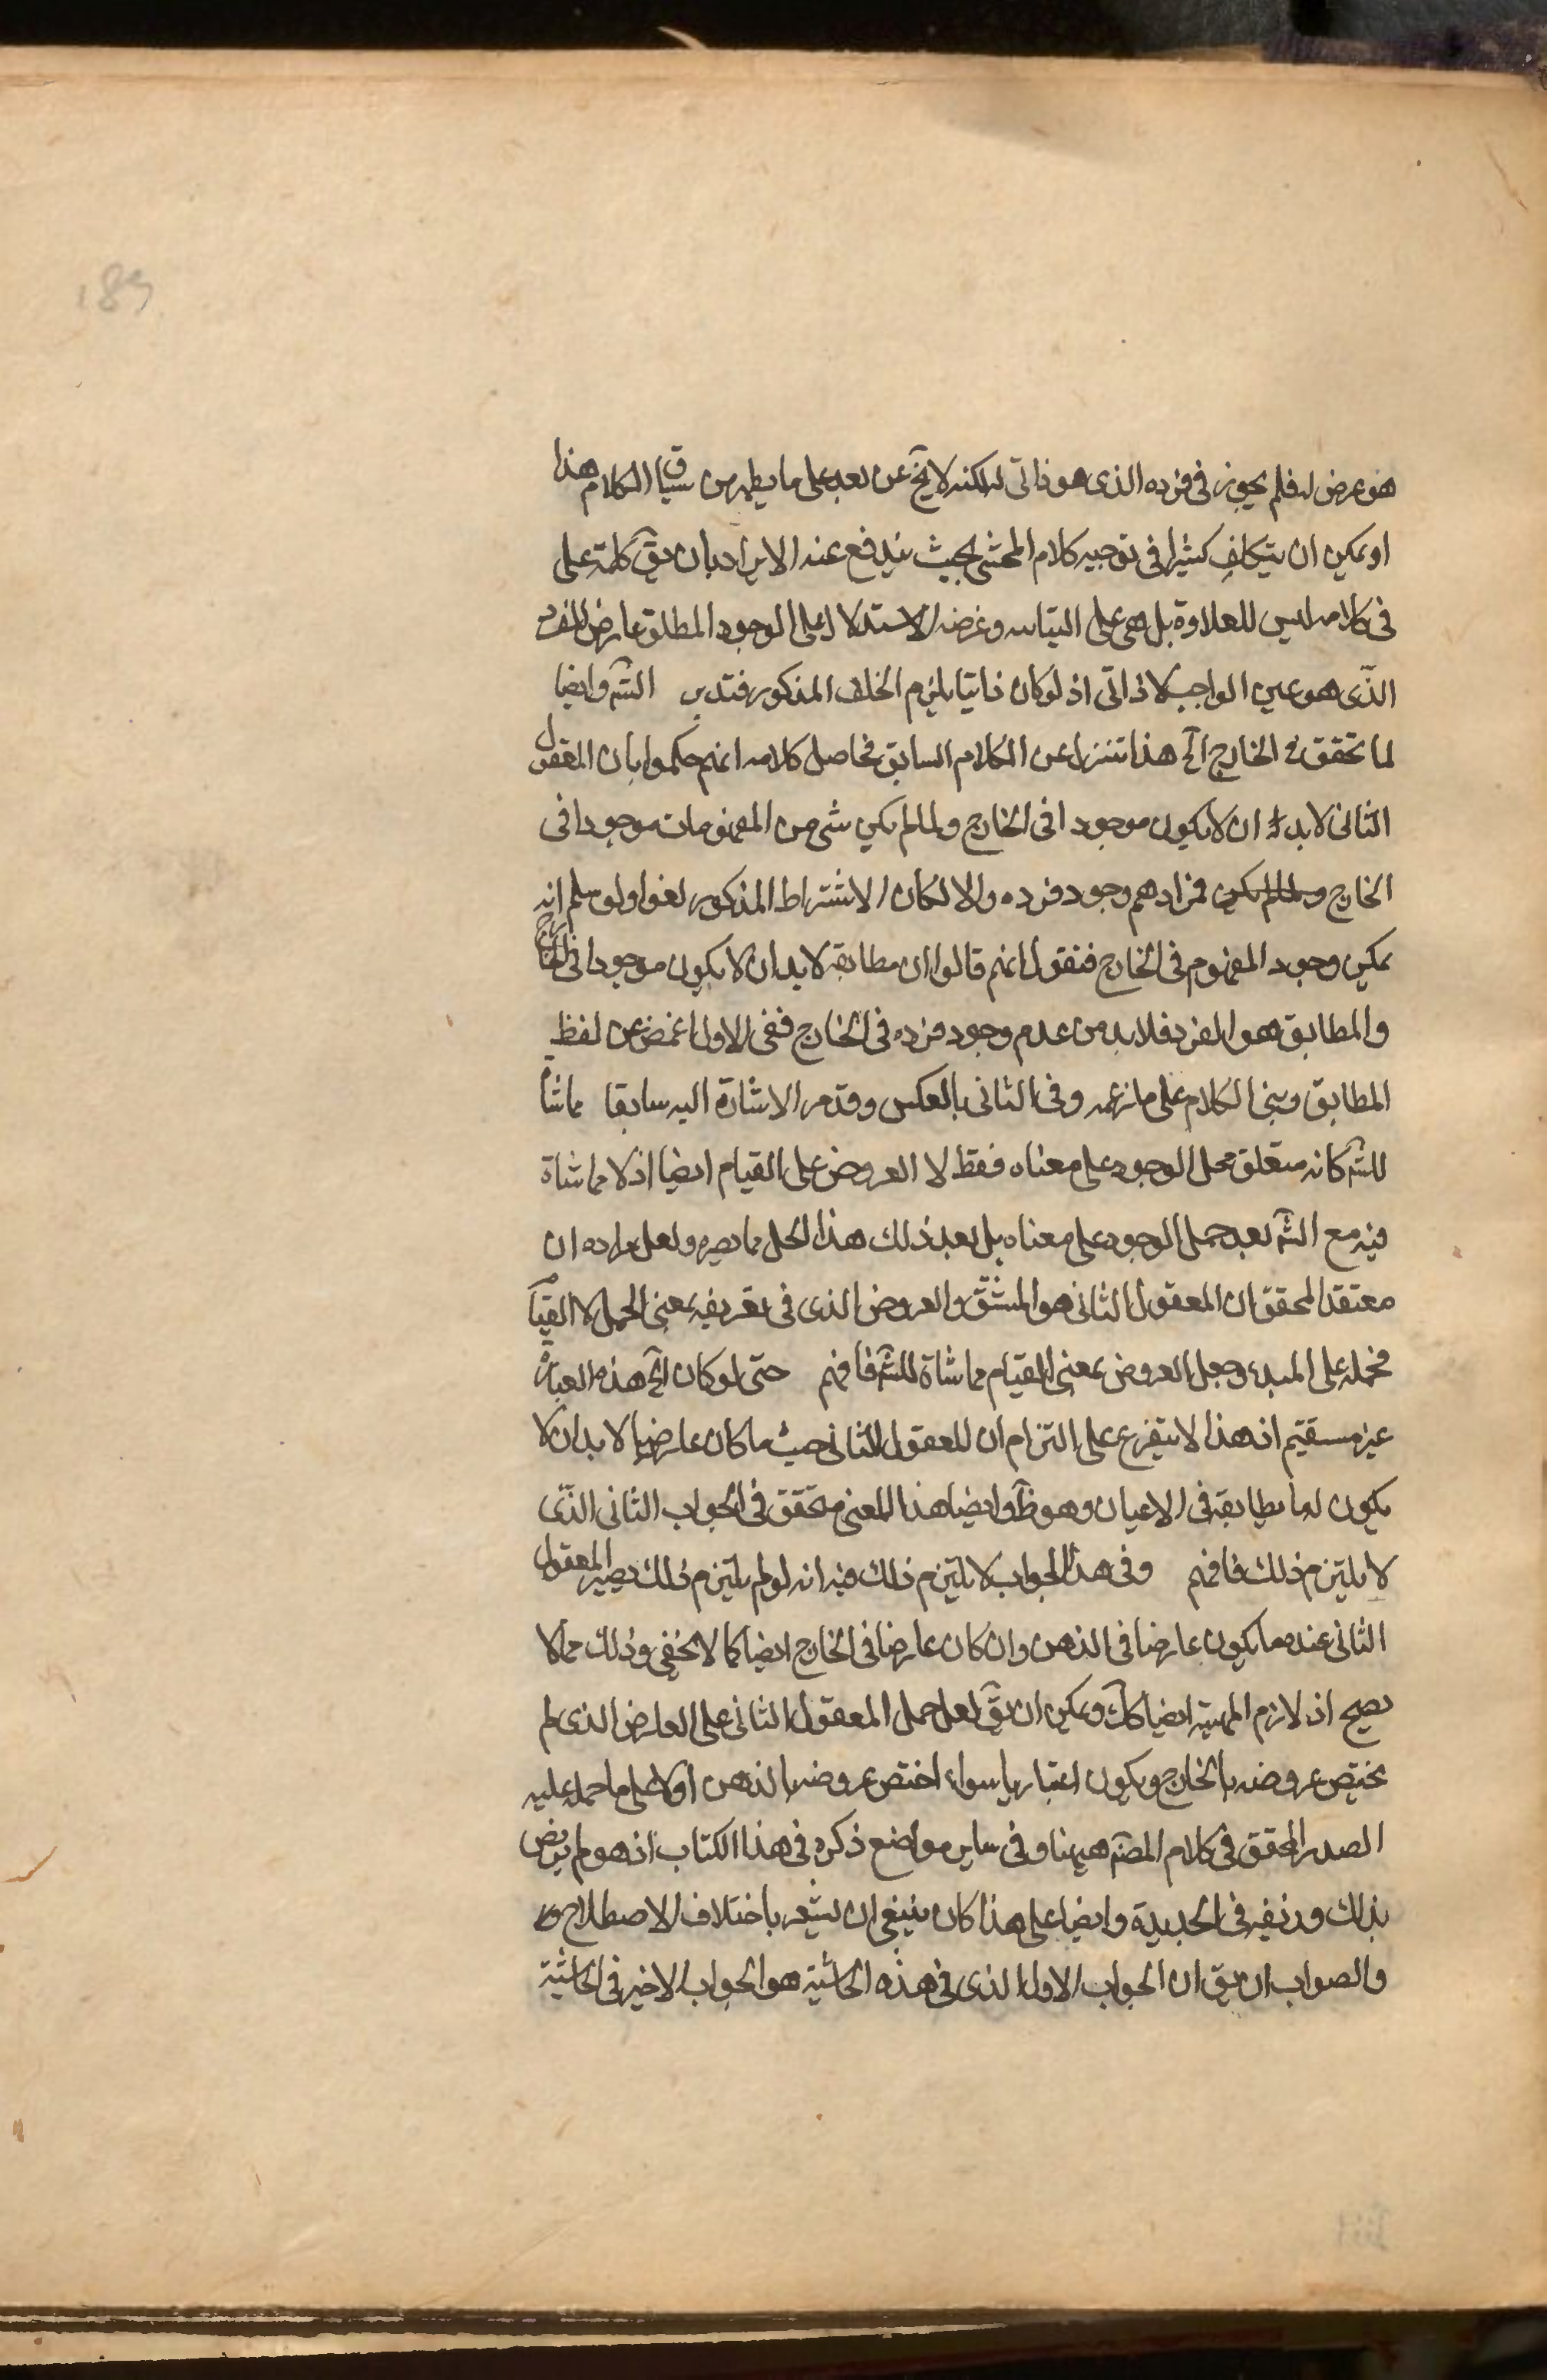 189
هو عرض له فلم يجوز فى فرده الذى هو ذاتى له لكنه لا يخ عن بعد على ما يظهر من سياق الكلام هذا
او يمكن ان يتكلف كثيرا فى توجيه كلام المحشى بحيث يندفع عنه الايراد بان يق كلمة على
فى كلامه ليس للعلاوة بل هى على وغرضه الاستدلال على الوجود المطلق عارض للفرد
الذى هو عين الواجب لا ذاتى اذ لو كان ذاتيا يلزم الخلف المذكور فتدبر الشّ وايضا
لما تحقق فى الخارج آه هذا تنزل عن الكلام السابق فحاصل كلامه انهم حكموا بان المعقول
الثانى لا بد ان لا يكون موجودا فى الخارج ولما لم يكن شى من المفهومات موجودا فى
الخارج ولما لم يكن فمرادهم وجود فرده والا لكان الاشتراط المذكور لغوا ولو سلم انه
يمكن وجود المفهوم فى الخارج فنقول انهم قالوا ان مطابقه لا بد ان لا يكون موجودا فى الخارج
والمطابق هو الفرد فلا بد من عدم وجود فرده فى الخارج ففى الاول اغمض عن لفظ
المطابق وبنى الكلام على ما زعمه وفى الثانى بالعكس وقد مر الاشارة اليه سابقا مماشاة
للشّ كانه متعلق بحمل الوجود على معناه فقط لا العروض على القيام ايضا اذ لا مماشاة
فيه مع الشّ بعد حمل الوجود على معناه بل بعد ذلك هذا الحمل مما يصير ولعل مراده ان
معتقد المحقق ان المعقول الثانى هو المشتق والعروض الذى فى تعريفه بمعنى الحمل لا القيام
فحمله على المبدء وجعل العروض بمعنى القيام مماشاة للشّ فافهم حتى لو كان آه هذه العبارة
غير مستقيم اذ هذا لا يتفرع على التزام ان للمعقول الثانى حيث ما كان عارضا لا بد ان لا
يكون له ما يطابقه فى الاعيان وهو ظٓ وايضا هذا المعنى متحقق فى الجواب الثانى الذى
لا يلتزم ذلك فافهم وفى هذا الجواب لا يلتزم ذلك فيه انه لو لم يلتزم ذلك يصير المعقول
الثانى عنده ما يكون عارضا فى الذهن وان كان عارضا فى الخارج ايضا كما لا يخفى وذلك مما لا
يصح اذ لازم المهية ايضا كك ويمكن ان يق لعل حمل المعقول الثانى على العارض الذى لم
يختص عروضه بالخارج ويكون اعتباريا سواء اختص عروضه بالذهن اولا على ما حمل عليه
الصدر المحقق فى كلام المصّ هيهنا وفى ساير مواضع ذكره فى هذا الكتاب اذ هو لم يرض
بذلك فى الجديدة وايضا على هذا كان ينبغى ان يشعر باختلاف الاصطلاح
والصواب ان يق ان الجواب الاول الذى فى هذه الحاشية هو الجواب الاخير فى الحاشية